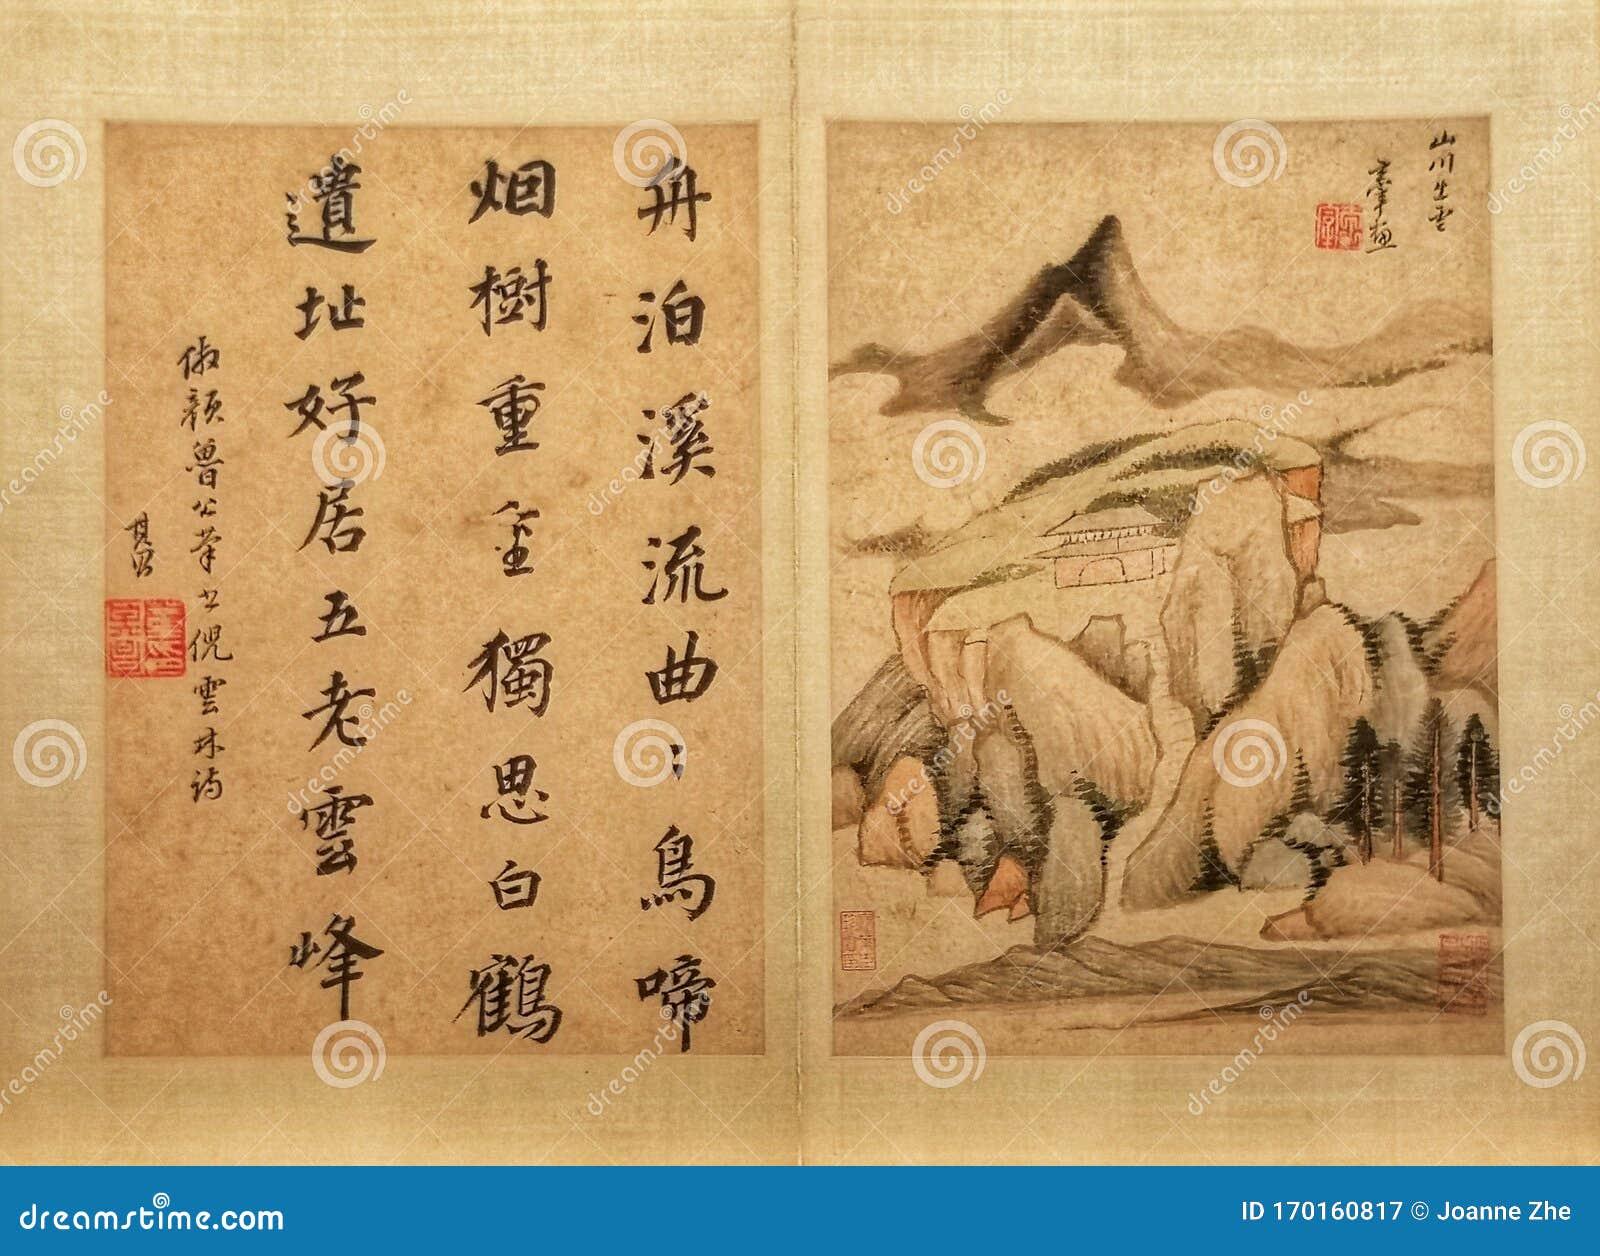 山川出雲
玄宰畫
舟泊溪流曲〻鳥啼
烟樹重重獨思白鶴
遺址好居五老雲峰
倣顏魯公筆書倪雲林詩
其昌
dreamstime.com
ID 170160817 © Joanne Zhe